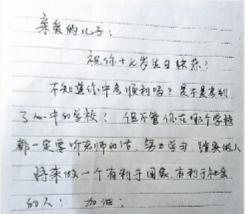 亲爱的儿子：
祝你十六岁生日快乐！
不知道你中考顺利吗？是不是考到
了心中的学校？但不管你在哪个学校
都一定要听老师的话，努力学习，
将来做一个有利于国家、有利于社会
的人！加油！